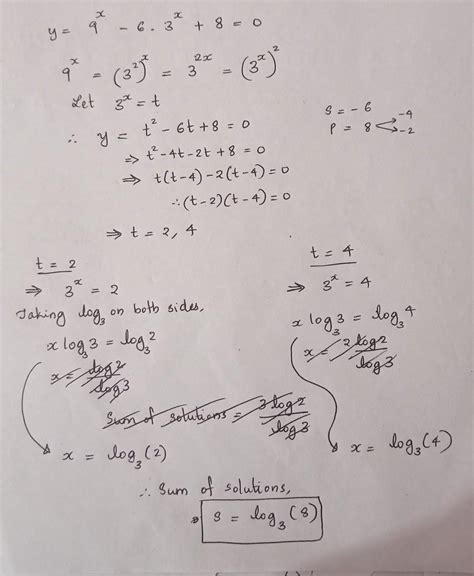 y = 9^x - 6 · 3^x + 8 = 0
9^x = (3^2)^x = 3^{2x} = (3^x)^2
Let 3^x = t
∴ y = t^2 - 6t + 8 = 0
S = -6
P = 8 -4 -2
⇒ t^2 - 4t - 2t + 8 = 0
⇒ t(t-4) - 2(t-4) = 0
∴ (t-2)(t-4) = 0
⇒ t = 2, 4
t = 2
⇒ 3^x = 2
Taking log_3 on both sides,
x log_3 3 = log_3 2
x = log 2 / log 3
t = 4
⇒ 3^x = 4
x log_3 3 = log_3 4
x = 2 log 2 / log 3
Sum of solutions = 3 log 2 / log 3
x = log_3 (2)
x = log_3 (4)
∴ Sum of solutions,
⇒ S = log_3 (8)